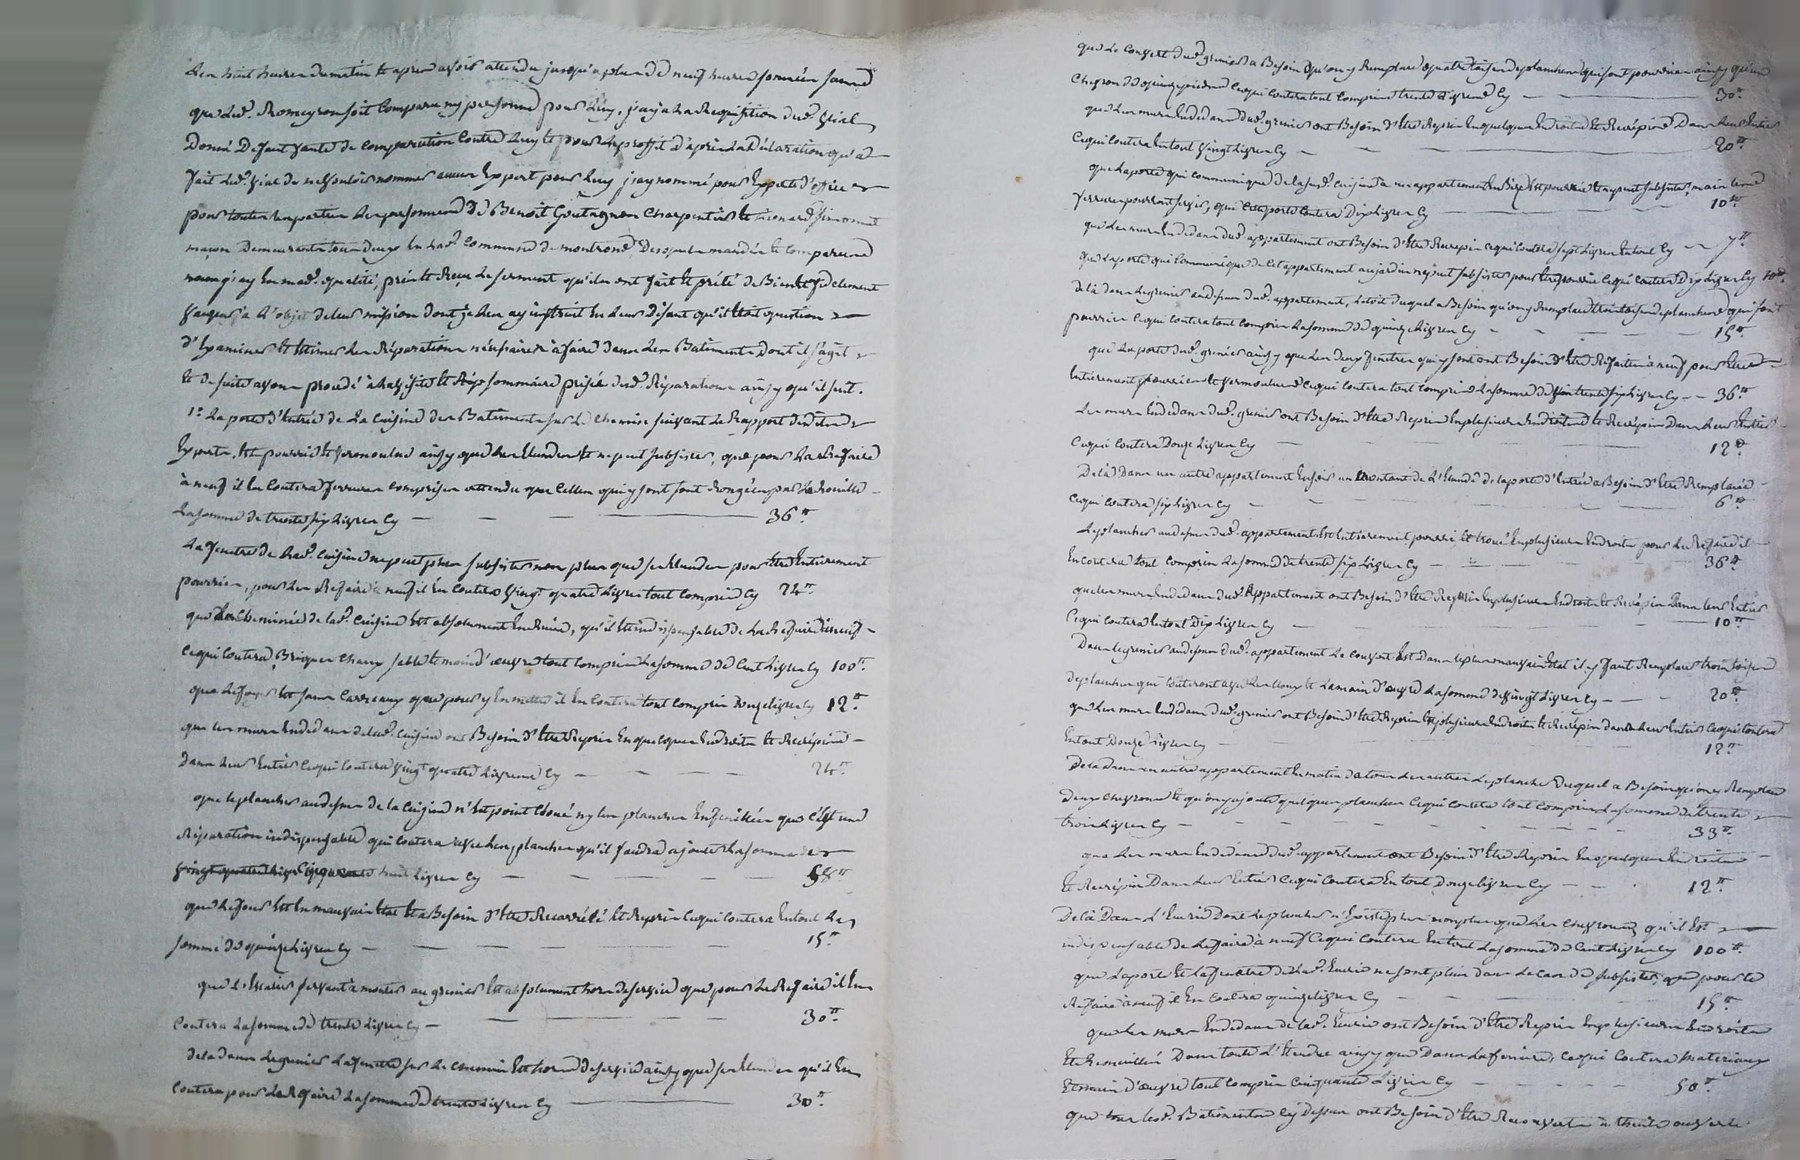 Les huit heures du matin et apres avoir attendu jusqu'a plus de neuf heures sonnées sans
que led. Romeyron soit comparu ny personne pour luy, j'ay a la Requisition dud. Vial
Donné Defaut faute de comparution contre luy et pour le proffit d'après la déclaration qu'a
fait led. Vial de ne vouloir nommer aucun Expert pour luy j'ay nommé pour Experts d'office
pour toutes les parties les personnes de Benoit Goutagneu Charpentier et Leonard
maçon Demeurants tous deux en lad. Commune de montrond, Desquels mandés et comparus
nous j'ay en mad. qualité, pris et Recu le serment qu'ils ont fait et prété de Bien et fidelement
Vacquer a L'objet de leur mission dont je les ay instruit en leur Disant qu'il étoit question
d'Examiner et Estimer les Réparations nécessaires à faire dans les Batiments dont il s'agit
et de suite avons procédé à la visitte et sommaire prisée desd. Réparations ainsy qu'il suit.
1° La porte d'Entrée de La Cuisine des Batiments sur le Chemin suivant le Rapport desdits
Experts, est pourrie et vermoulue ainsy que ses Elendes et ne peut subsister, que pour la Refaire
à neuf il en coutera ferrures comprises attendu que celles qui y sont sont rongées par la Rouille
La somme de trente six Livres Cy — 36.tt
La fenetre de lad. cuisine ne peut plus subsister non plus que ses Elendes pour etre Entierement
pourries, pour les Refaire à neuf il en coutera Vingt quatre Livres tout compris Cy 24.tt
que La Cheminée de lad. Cuisine est absolument En Ruine, qu'il est indispensable de la Refaire à neuf
ce qui coutera, Briques Chaux, sable et main d'œuvre tout compris La somme de Cent Livres Cy 100.tt
que Le foyer est sans carreaux que pour y en mettre il en coutera tout compris Douze livres Cy 12.tt
que les murs En dedans de lad. Cuisine ont Besoin d'Etre Repris En quelques Endroits et Recrépis
dans leur Entier ce qui coutera Vingt quatre Livres Cy — 24.tt
que le plancher au dessus de la Cuisine n'Est point cloué ny les planches que c'Est une
Réparation indispensable qui coutera avec les planches qu'il faudra ajouter La somme de
cinquante huit Livres Cy — 58.tt
que Le four Est En mauvais Etat et a Besoin d'Etre et Repris ce qui coutera En tout La
somme de quinze Livres Cy — 15.tt
que L'Escalier servant à monter au grenier Est absolument hors de service que pour Le Refaire il En
Coutera La somme de trente Livres Cy — 30.tt
de la dans Le grenier La fenetre sur Le Chemin Est hors de service ainsy que ses Elendes qu'il En
Coutera pour Le Refaire La somme de trente Livres Cy — 30.tt
que Le Couvert dud. grenier a Besoin qu'on y Remplace quatre toises de planches qui sont pourries ainsy qu'un
Chevron de quinze pieds ce qui coutera tout compris trente Livres Cy — 30.tt
que Les murs En dedans dud. grenier ont Besoin d'Etre Repris En quelques Endroits et Recrépis Dans Leur Entier
Ce qui Coutera En tout Vingt Livres Cy — 20.tt
que La porte qui communique de la susd. Cuisine a un appartement est pourrie et ne peut subsister, mais les
ferrures pourront servir, que cette porte coutera Dix Livres Cy — 10.tt
que Les murs En dedans dud. appartement ont Besoin d'Etre Recrepis ce qui coutera sept Livres En tout Cy — 7.tt
que La porte qui Communique de cet appartement au jardin ne peut subsister pour être pourrie ce qui coutera Dix Livres Cy 10.tt
De là dans Le grenier au dessus dud. appartement, Le toit duquel a Besoin qu'on y Remplace trois toises de planches qui sont
pourries ce qui coutera tout compris La somme de quinze Livres Cy — 15.tt
que La porte dud. grenier ainsy que Les deux fenêtres qui y sont ont Besoin d'Etre Refaites à neuf pour Etre
Entierement pourries et vermoulues ce qui coutera tout compris La somme de trente six Livres Cy — 36.tt
Les murs En dedans dud. grenier ont Besoin d'Etre Repris En plusieurs Endroits et Recrépis Dans Leur Entier
Ce qui Coutera Douze Livres Cy — 12.tt
De là Dans un autre appartement En soir un montant de L'Elende de la porte d'Entrée a Besoin d'Etre Remplacé
Ce qui Coutera six Livres Cy — 6.tt
Le plancher au dessus dud. appartement Est Entierement pourri et troué En plusieurs Endroits pour Le Refaire il
En Coutera tout compris La somme de trente six Livres Cy — 36.tt
que les murs En dedans dud. Appartement ont Besoin d'Etre Repris En plusieurs Endroits et Recrépis Dans leur Entier
Ce qui Coutera En tout Dix Livres Cy — 10.tt
Dans Le grenier au dessus dud. appartement Le couvert Est Dans le plus mauvais Etat il y faut Remplacer trois toises
de planches qui couteront avec Les Cloux et La main d'œuvre La somme de Vingt Livres Cy — 20.tt
que Les murs En dedans dud. grenier ont Besoin d'Etre Repris En plusieurs Endroits et Recrépis dans Leur Entier Ce qui Coutera
En tout Douze Livres Cy — 12.tt
De la Dans un autre appartement En matin a côté des autres Le plancher Duquel a Besoin qu'on y Remplace
Deux Chevrons et qu'on y ajoute quelques planches Ce qui Coutera tout compris La somme de trente
trois Livres Cy — 33.tt
que Les murs En dedans dud. appartement ont Besoin d'Etre Repris En quelques Endroits
et Recrépis Dans Leur Entier Ce qui Coutera En tout Douze Livres Cy — 12.tt
De là Dans L'Ecurie Dont Le plancher n'Existe plus non plus que Les Chevrons qu'il Est
indispensable de Refaire à neuf Ce qui Coutera En tout La somme de Cent Livres Cy 100.tt
que La porte Et La fenetre de Lad. Ecurie ne sont plus Dans Le Cas de subsister, que pour les
Refaire à neuf il En Coutera quinze Livres Cy — 15.tt
que Les murs En dedans de lad. Ecurie ont Besoin d'Etre Repris En plusieurs Endroits
Et Dans toute L'Etendue ainsy que Dans La feniere, ce qui Coutera Materiaux
Et main d'œuvre tout compris Cinquante Livres Cy — 50.tt
que tous Lesd. Batiments Cy dessus ont Besoin d'Etre Recouverts à